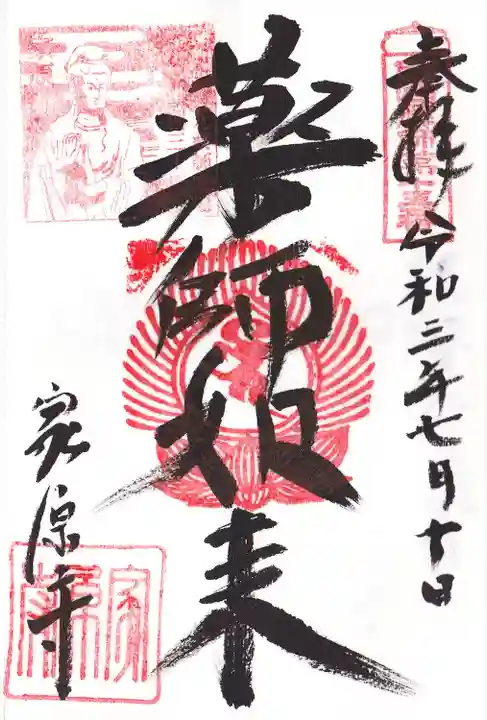 奉拝 令和三年七月十日
薬師如来
家原寺